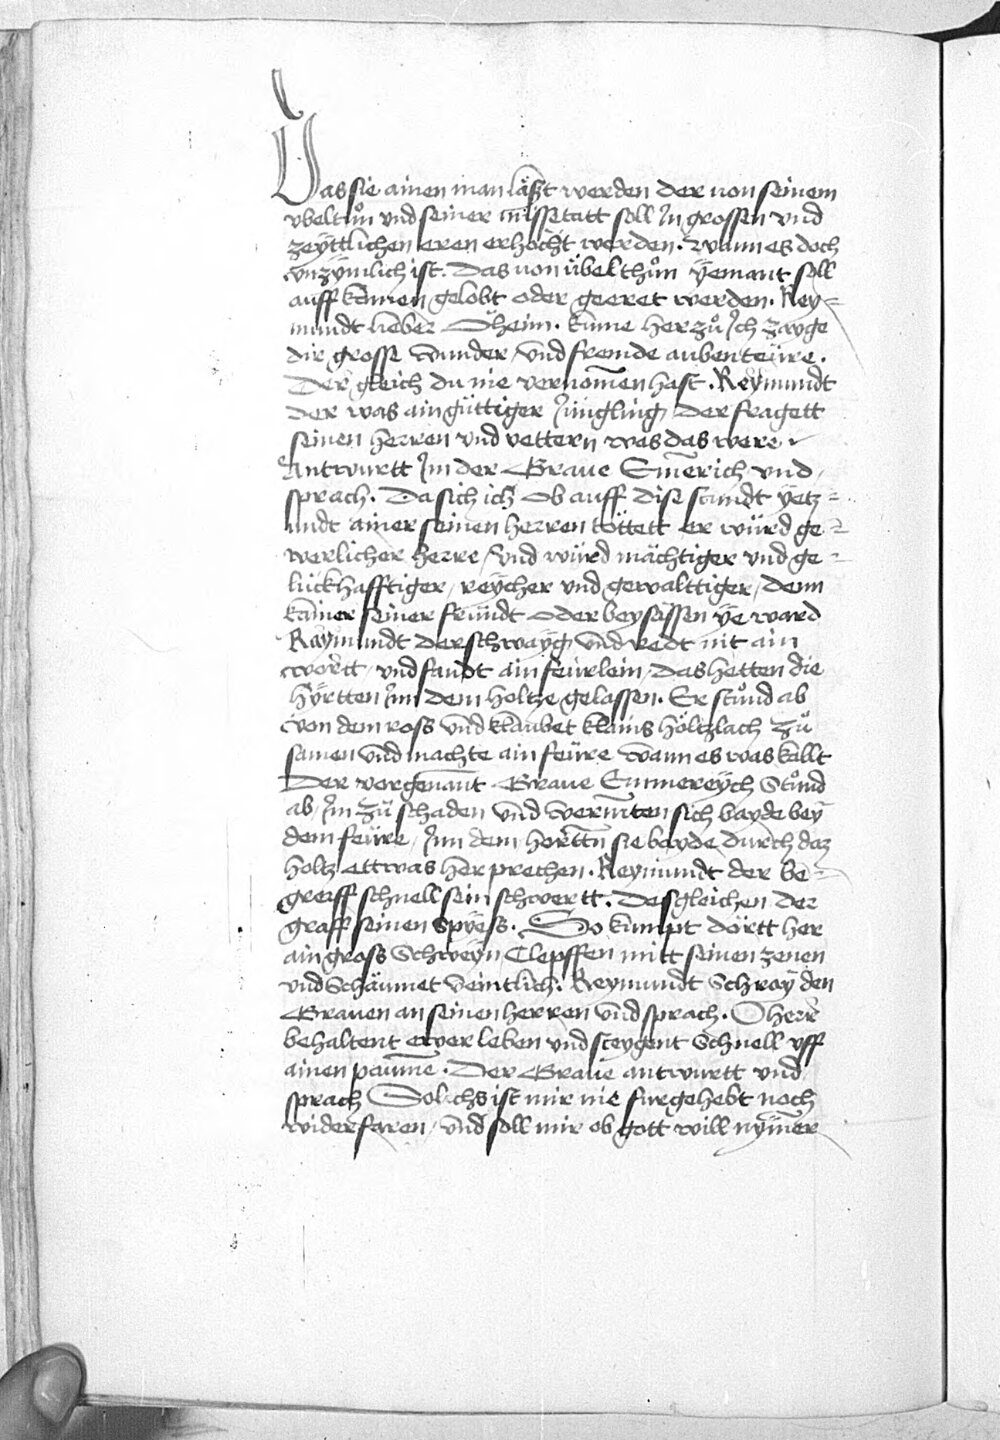 Das sie ainen man läst werden der von seinem
vbeltůn vnd seiner missetatt soll Jn grossen vnd
zeyttlichen eren erhöcht werden. wann es doch
vnzymlich ist. Das von übelthůn yemant soll
auff komen gelobt oder geeret werden. Rey=
mundt lieber Öheim. kume herzů Jch zayge
dir grosse wunder / vnd fremde aubenteüre.
Der gleich du nie vernomen hast. Reymundt
der was ain güttiger Jüngling der fragett
seinen herren vnd vettern was das were
Antwurtt Jm der Graue Emerich vnd
sprach. Da sich ich Ob auff dise stundt yetz=
undt ainer seinen herren töttett er würd ge=
werlicher herre / Vnd würd mächtiger vnd ge=
lückhafftiger / reycher vnd gewalttiger / denn
kainer seiner fründt oder beysässen ye ward
Raymundt der schwayg vnd redt nit ain
wortt / vnd fandt ain feürlein / das hetten die
hyrtten Jnn dem holtze gelassen. Er stůnd ab
von dem ross vnd klaubet klains höltzlach zů
samen vnd machte ain feüre wann es was kallt
Der vorgenant Graue Emmereych Stůnd
ab / Jm zů schaden vnd wermten sich bayde bey
dem feüre / Jnn dem hortten sie bayde durch daz
holtz ettwas her prechen. Reymundt der be=
greiff schnell sein schwertt. Desgleichen der
graff seinen Spyess. So kumpt dörtt her
ain gross Schweyn Clepffen mitt seinen zenen
vnd Schäumet veintlich. Reymundt Schray den
Grauen an seinen herren vnd sprach. O herr
behaltent ewer leben vnd steygent Schnell vff
ainen paume. Der Graue antwurtt vnd
sprach Solichs ist mir nie furgehebt noch
widerfaren / vnd soll mir ob gott will nymer